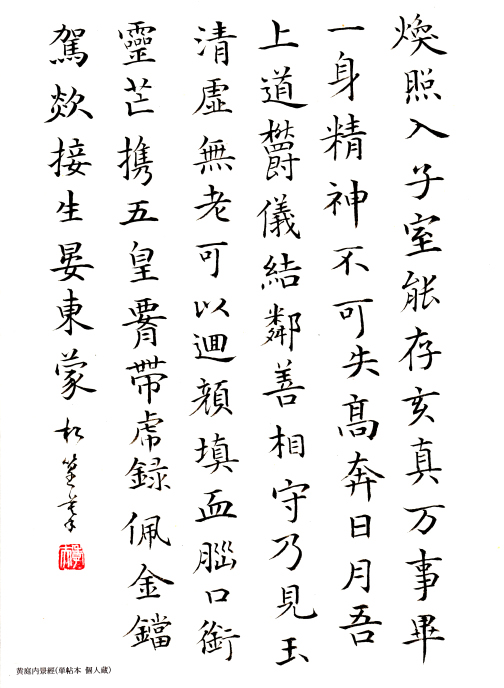 煥照入子室能存亥真万事畢
一身精神不可失高奔日月吾
上道欝儀結鄰善相守乃見玉
清虚無老可以廻顔填血腦口銜
靈芒携五皇䙅帶虎録佩金鐺
駕欻接生晏東蒙
黄庭内景經(單帖本 個人蔵)